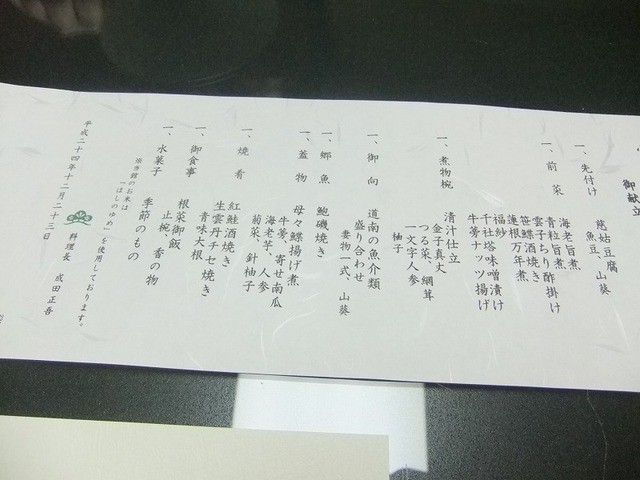 御献立
一、先付け 慈姑豆腐
魚豆、山葵
一、前菜 海老旨煮
青粒旨煮
雲子ちり酢掛け
笹鰈酒焼き
蓮根万年煮
福紗
千社塔味噌漬け
牛蒡ナッツ揚げ
一、煮物椀 清汁仕立
金子真丈
つる菜、網茸
一文字人参
柚子
一、御向 道南の魚介類
盛り合わせ
妻物一式、山葵
一、郷魚 鮑磯焼き
一、蓋物 母々鰈揚げ煮
牛蒡、寄せ南瓜
海老芋、人参
菊菜、針柚子
一、焼肴 紅鮭酒焼き
生雲丹チーズ焼き
青味大根
一、御食事 根菜御飯
止椀、香の物
一、水菓子 季節のもの
当館のお米は
「ほしのゆめ」を使用しております。
平成二十四年十二月二十三日 料理長 成田正吾